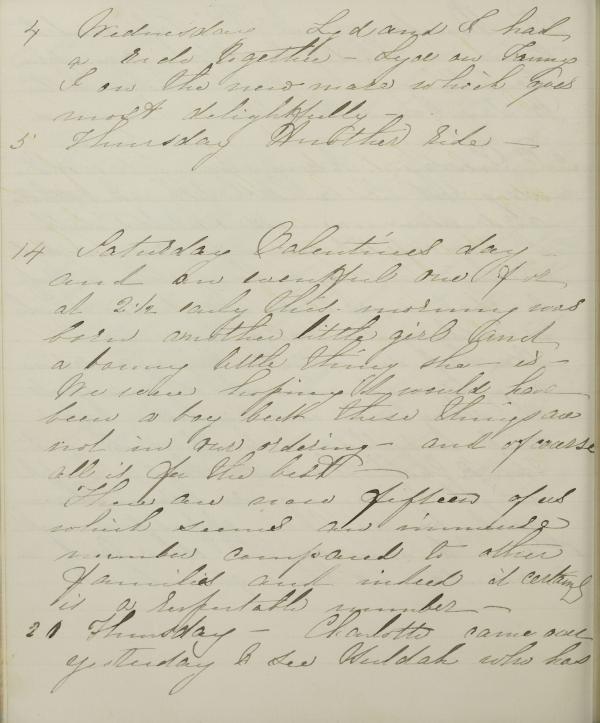 4 Wednesday Lyd and I had
a ride together - Lyde on Fanny
I on the new mare which goes
most delightfully -
5 Thursday Another ride -
14 Saturday Valentines day
and an eventful one for
at 2 1/2 early this morning was
born another little girl and
a bonny little thing she is -
We were hoping it would have
been a boy but these things are
not in our ordering - and of course
all is for the best -
There are now fifteen of us
which seems an immense
number compared to other
families and indeed it certainly
is a respectable number -
20 Thursday - Charlotte came over
yesterday to see Huldah who has